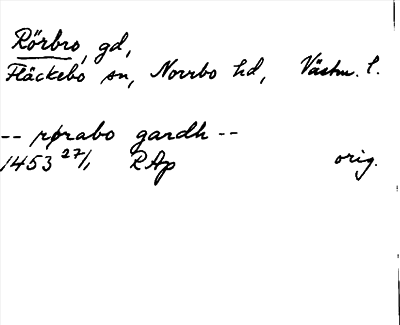 Rörbro, gd,
Fläckebo sn, Norrbo hd, Västm. l.
-- rørabo gardh --
1453 27/1 RAp orig.